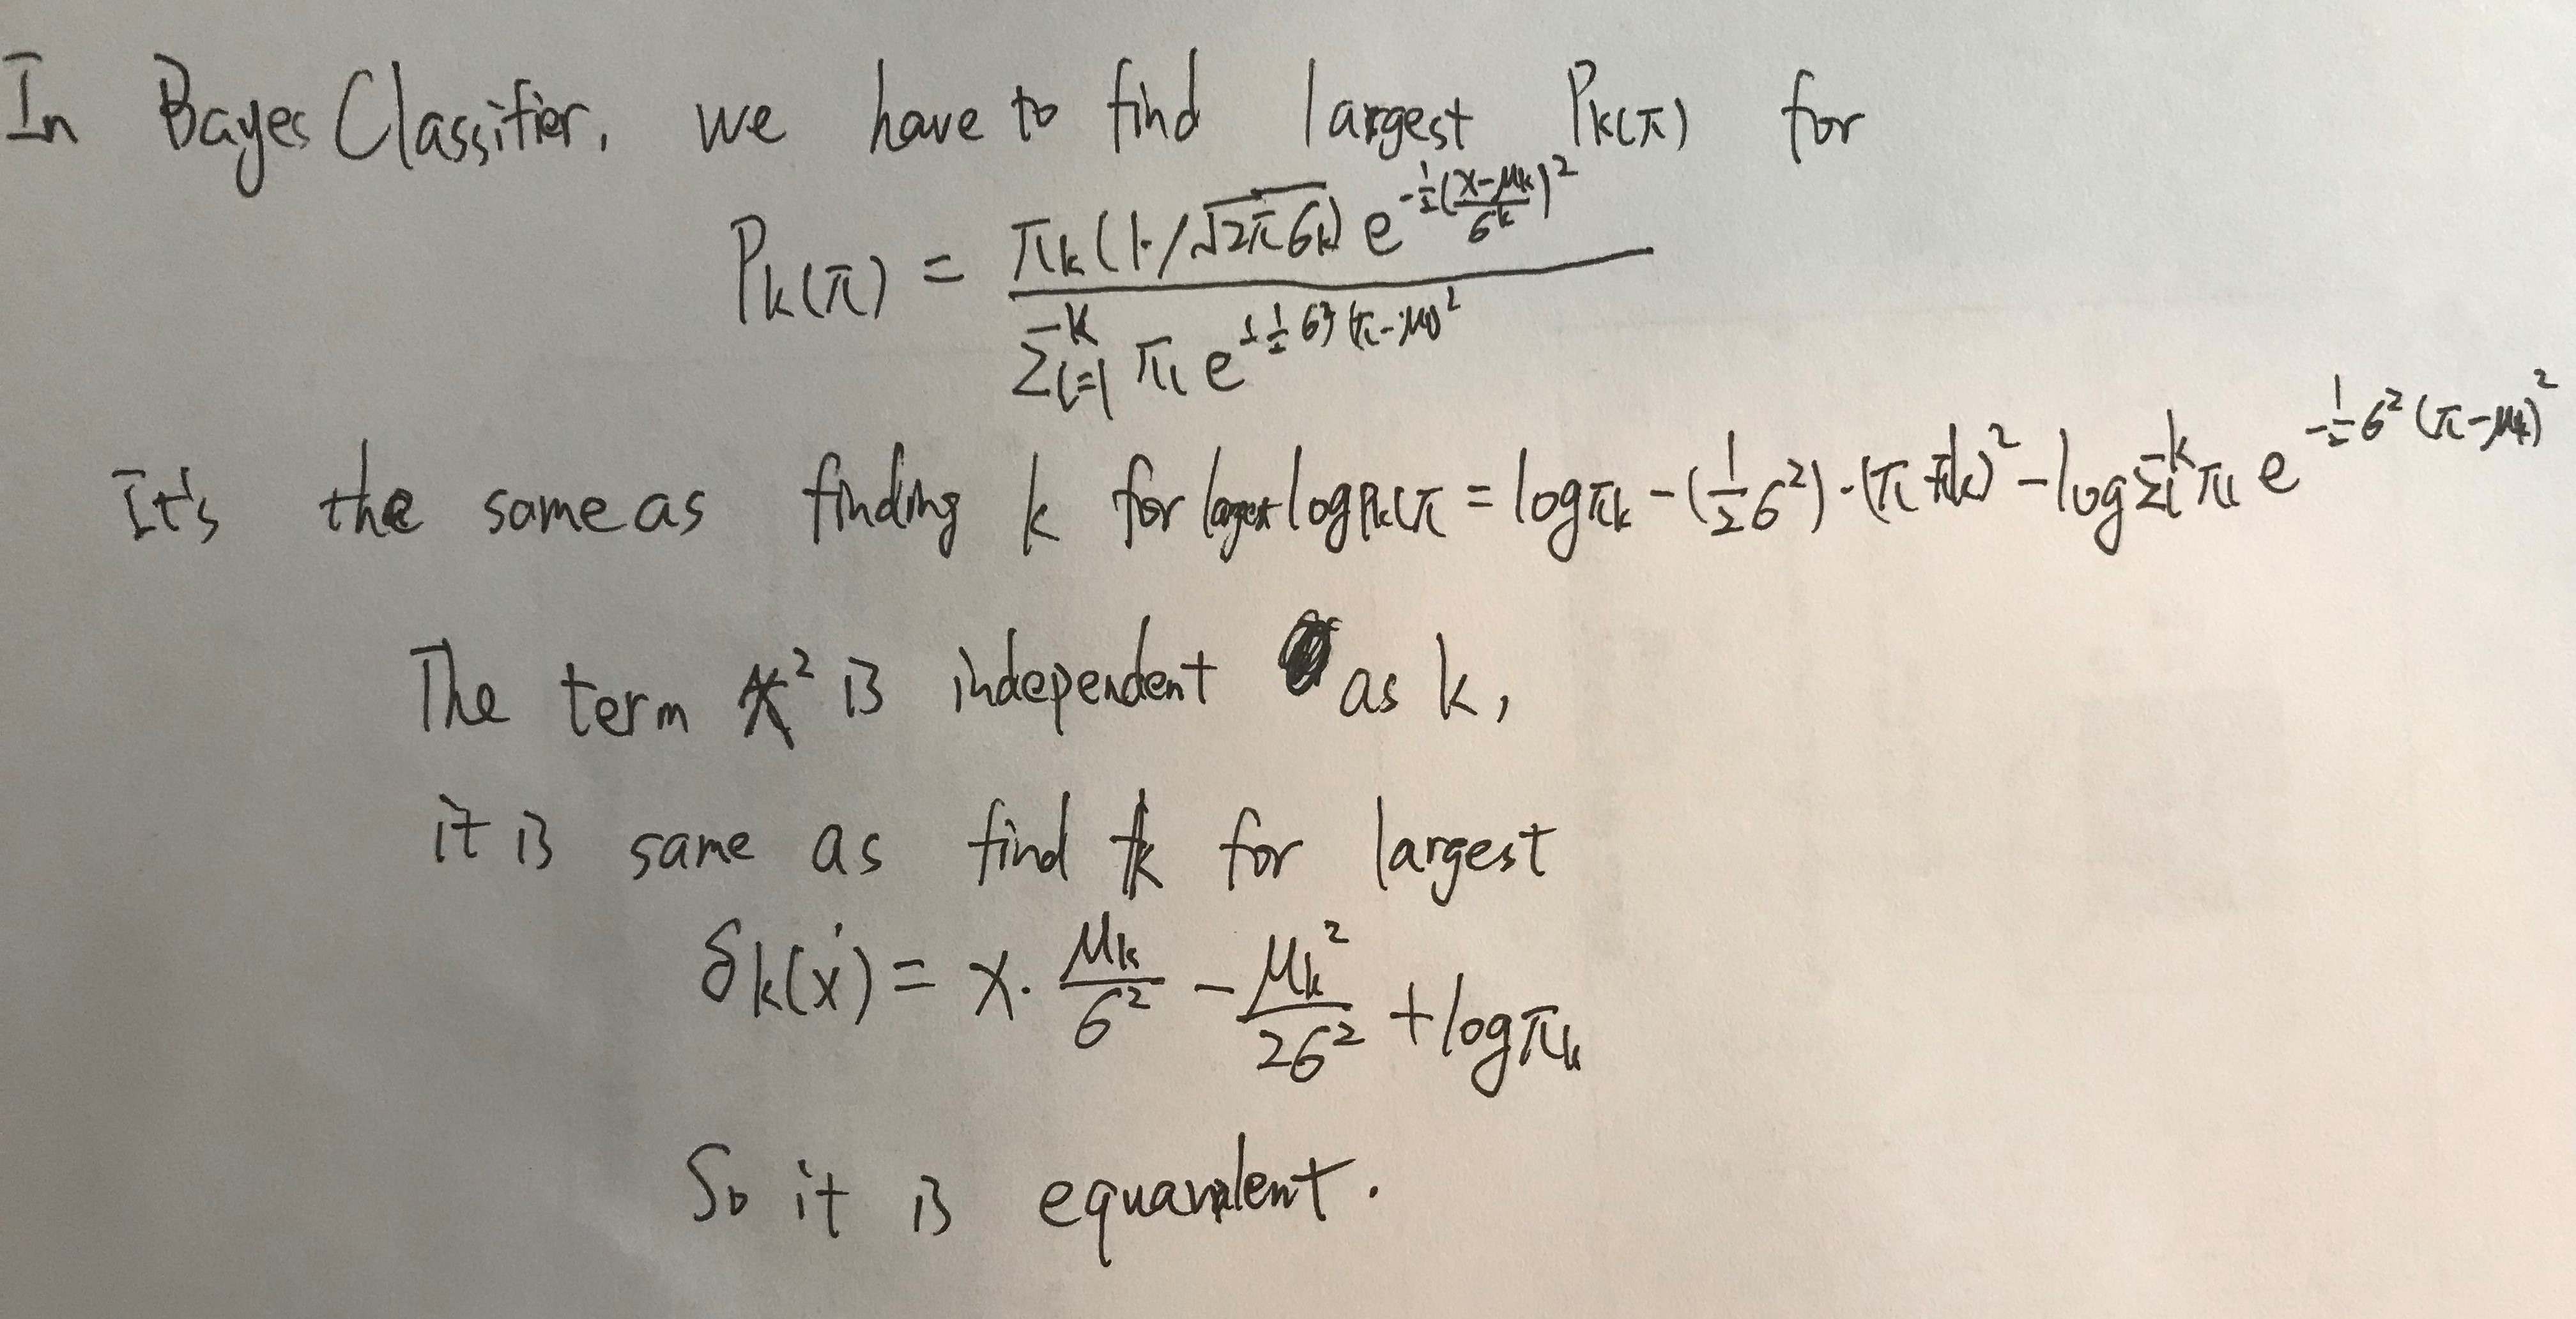 In Bayes Classifier, we have to find largest Pk(π) for
Pk(π) = πk (1/√2πσk) e^{-1/2((x-μk)/σk)^2} / Σ_{l=1}^{k} πl e^{-1/2 σ^2 (π-μl)^2}
It's the same as finding k for largest log Pk(π = log πk - (1/2 σ^2)·(π - μk)^2 - log Σ_l^k πl e^{-1/2 σ^2 (π-μk)^2}
The term x^2 is independent as k,
it is same as find k for largest
δk(x) = x · μk/σ^2 - μk^2/2σ^2 + log πk
So it is equavalent.